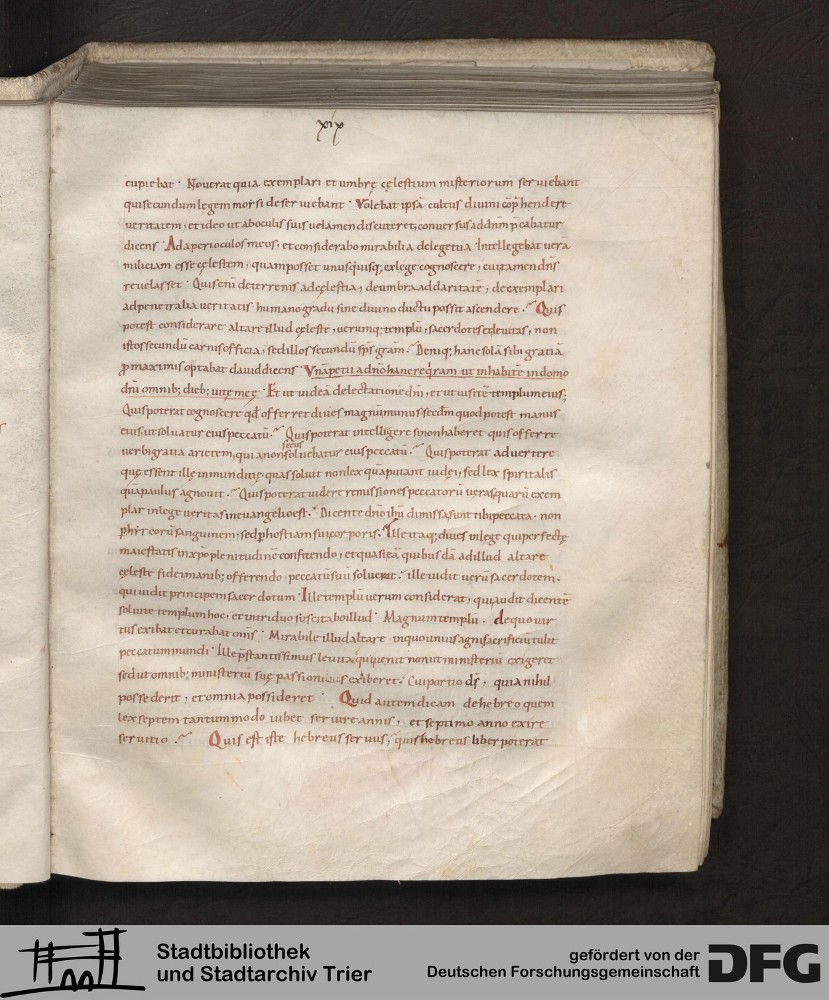 xix
cupiebat · Nouerat quia exemplari et umbrę cęlestium misteriorum seruiebant
qui secundum legem moisi deseruiebant · Volebat ipsā cultus diuini cōp̄hendere
ueritatem, et ideo ut ab oculis suis uelamen discuteret, conuersus ad dnm̄ p̄cabatur
dicens · Adaperi oculos meos, et considerabo mirabilia de lege tua · Intellegebat uerā
miliciam esse cęlestem, quam posset unusquisq; ex lege cognoscere, cui tamen dn̄s
reuelasset · Quis eni de terrenis ad cęlestia, de umbra ad claritatē, de exemplari
ad penetralia ueritatis humano gradu sine diuino ductu possit ascendere · Quis
potest considerare altare illud cęleste, uerumq; templū, sacerdotes et leuitas, non
istos secundū carnis officia, sed illos secundū sp̄s gram̄ · Deniq; hanc solā sibi gratiā
p maximis optabat dauid dicens · Vnā petii a dn̄o hanc req̄ram ut inhabitē in domo
dn̄i omnib; dieb; uitę meę · Et ut uideā delectationē dn̄i, et ut uisitē templum eius,
Quis poterat cognoscere qd̄ offerret diues magnū munus secd̄m quod potest manus
eius, ut soluatur eius peccatū · Quis poterat intelligere si non haberet quis offerre
uerbi gratia arietem, quia non secus soluebatur eius peccatū · Quis poterat aduertere
quę essent illę inmunditię, quas soluit non lex quā putant iudei, sed lex spiritalis
quā paulus agnouit · Quis poterat uidere remissiones peccatorū ueras, quarū exem
plar in lege ueritas in euangelio est · Dicente dn̄o ihū dimissa sunt tibi peccata · non
p hircorū sanguinem, sed p hostiam sui corporis · Ille itaq; diues in lege qui perfectę
maiestatis in xp̄o plenitudinē confitendo, et quasi eā quibusdā ad illud altare
cęleste fidei manib; offerendo peccatū suū soluerit · ille uidit uerū sacerdotem,
qui uidit principem sacerdotum · Ille templū uerum considerat, qui audit dicentē
soluite templum hoc, et in triduo suscitabo illud · Magnum templū · de quo uir
tus exibat et curabat om̄s · Mirabile illud altare in quo unius agni sacrificiū tulit
peccatum mundi · Ille p̄stantissimus leuita qui uenit non ut ministeriū exigeret
sed ut omnib; ministeriū suę passionis exiberet · Cui portio d̄s, quia nihil
possederit, et omnia possideret · Quid autem dicam de hebreo quem
lex septem tantummodo iubet seruire annis, et septimo anno exire
seruitio · Quis est iste hebreus seruus, quis hebreus liber poterat
Stadtbibliothek
und Stadtarchiv Trier
gefördert von der
Deutschen Forschungsgemeinschaft
DFG